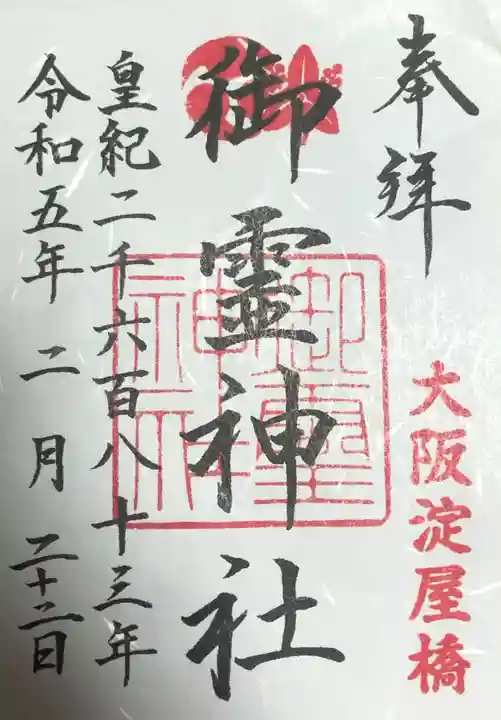 奉拝
大阪淀屋橋
御霊神社
御霊神社
皇紀二千六百八十三年
令和五年二月二十二日